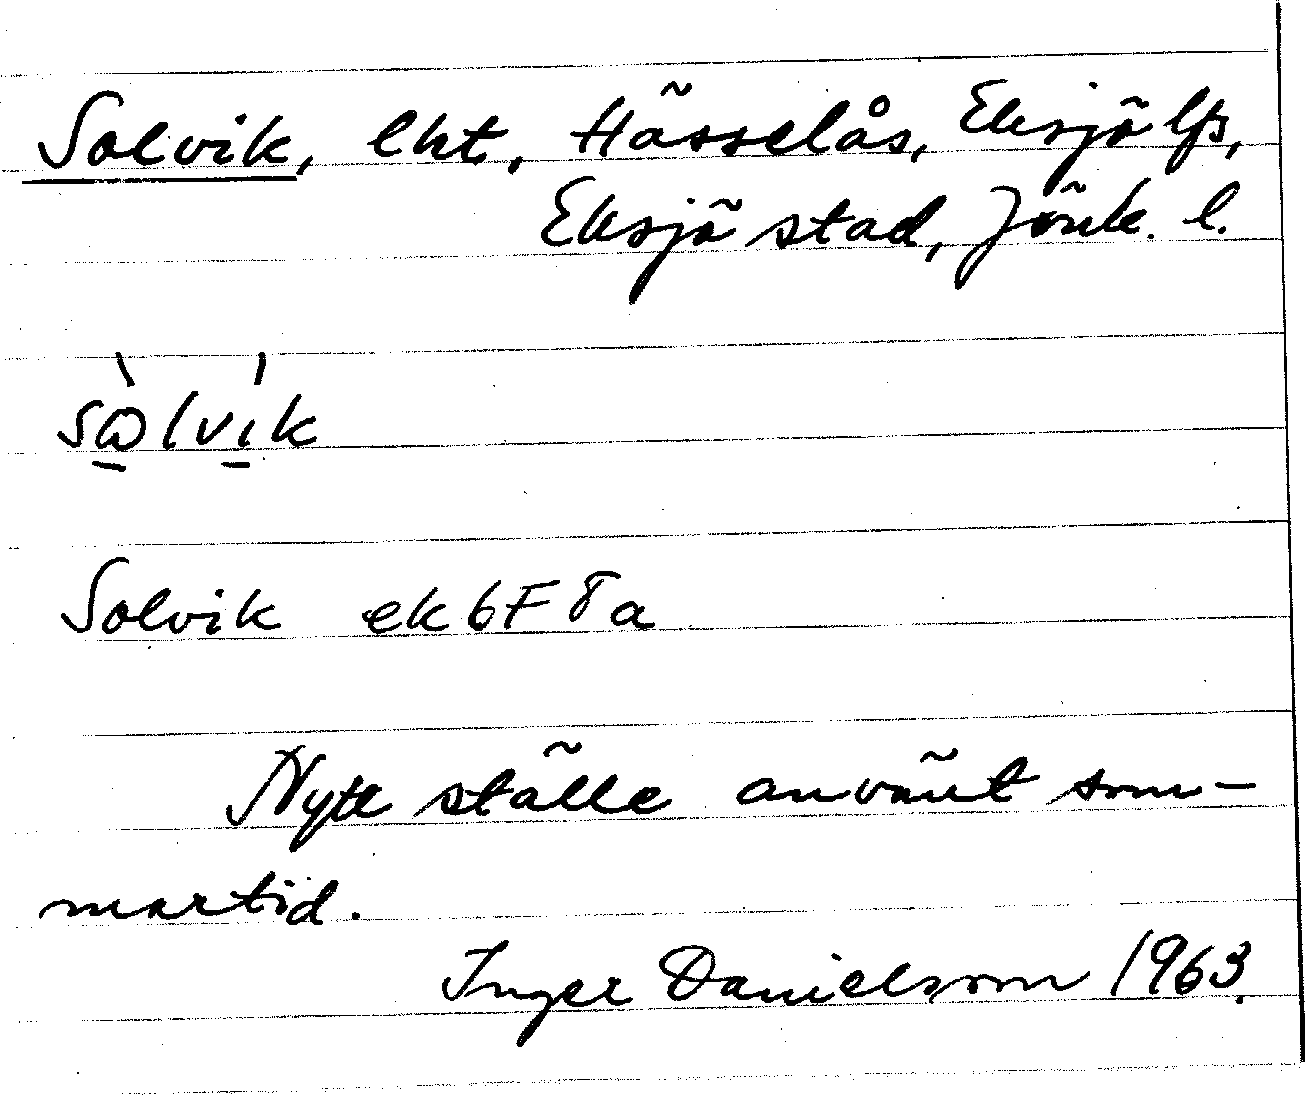 Solvik, lht, Hässelås, Eksjö lfs,
Eksjö stad, Jönk. l.
sὼ̲lvı̲́k
Solvik ek 6F 8a
Nytt ställe använt som-
martid.
Inger Danielsson 1963.